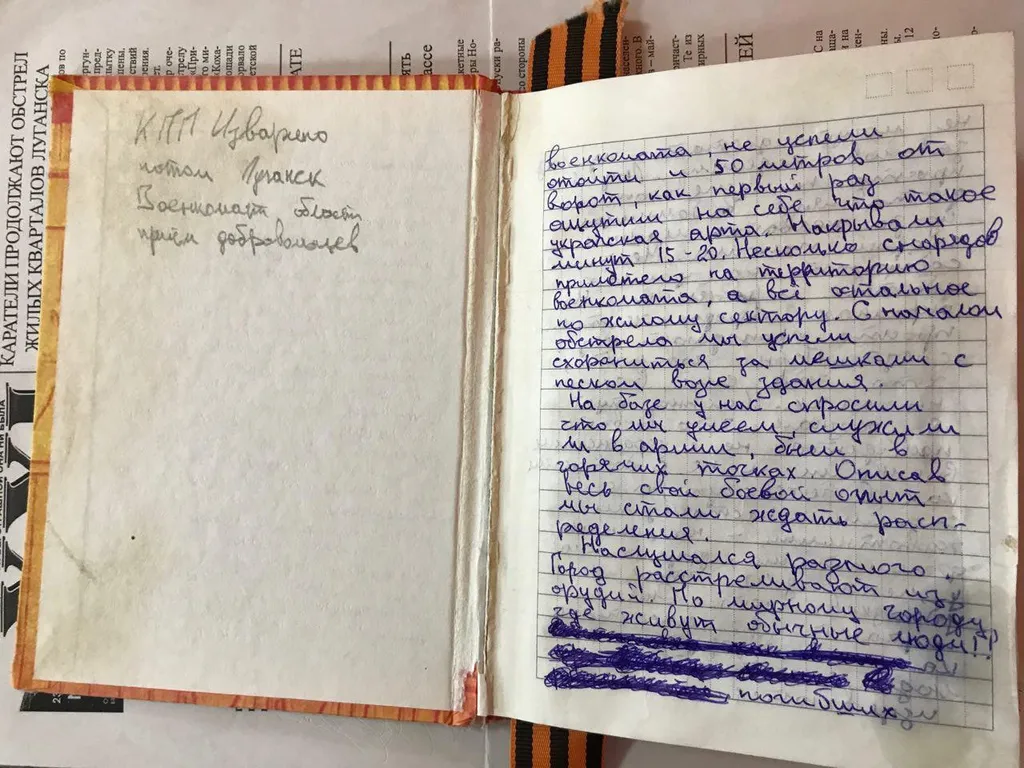 КАРАТЕЛИ ПРОДОЛЖАЮТ ОБСТРЕЛ
ЖИЛЫХ КВАРТАЛОВ ЛУГАНСКА
КПП Изварино
потом Луганск
Военкомат области
приём добровольцев
военкомата, не успели
отойти и 50 метров от
ворот, как первый раз
ощутили на себе что такое
украская арта. Накрывали
минут 15-20. Несколько снарядов
прилетело на территорию
военкомата, а всё остальное
по жилому сектору. С началом
обстрела мы успели
схорониться за мешками с
песком возле здания.
На базе у нас спросили
что мы умеем, служили
ли в армии, были в
горячих точках. Описав
весь свой боевой опыт
мы стали ждать расп-
ределения.
Наслушался разного.
Город расстреливают из
орудий. По мирному городу,
где живут обычные люди!!
погибших